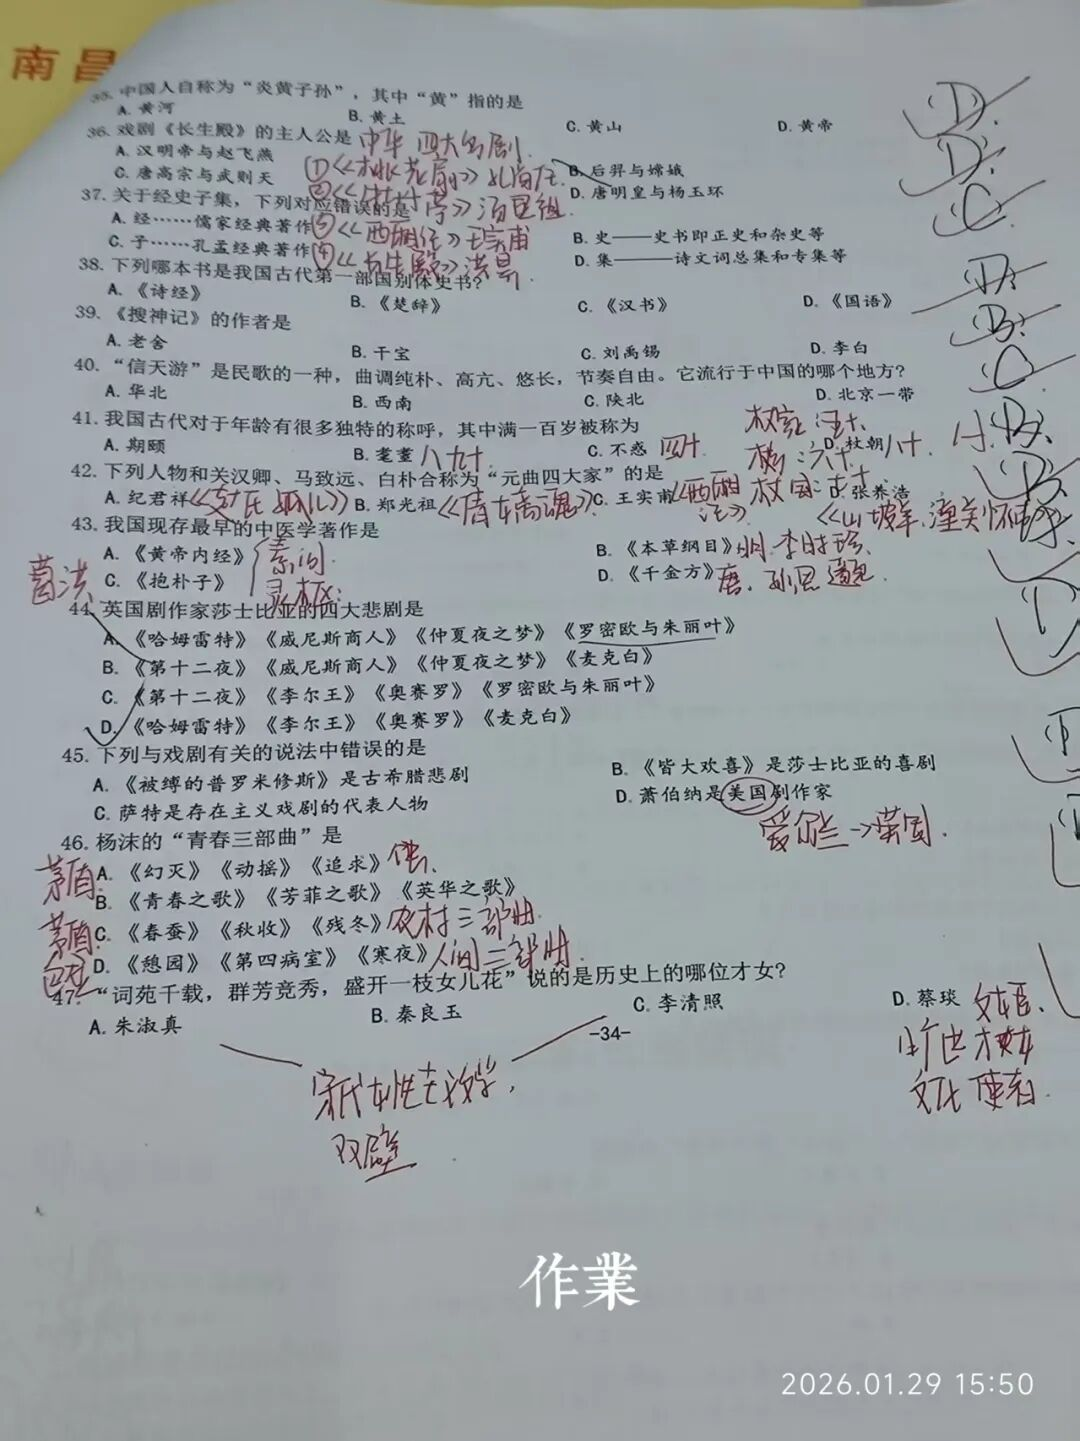 南昌
35. 中国人自称为“炎黄子孙”，其中“黄”指的是
A. 黄河 B. 黄土 C. 黄山 D. 黄帝
(D)
36. 戏剧《长生殿》的主人公是 中华四大名剧
A. 汉明帝与赵飞燕 B. 后羿与嫦娥
①《桃花扇》孔尚任
C. 唐高宗与武则天 D. 唐明皇与杨玉环
D
37. 关于经史子集，下列对应错误的是
汤显祖
A. 经……儒家经典著作 B. 史——史书即正史和杂史等
③《西厢记》王实甫
C. 子……孔孟经典著作 D. 集———诗文词总集和专集等
④《长生殿》洪昇
(C)
38. 下列哪本书是我国古代第一部国别体史书？
A. 《诗经》 B. 《楚辞》 C. 《汉书》 D. 《国语》
(D)
39. 《搜神记》的作者是
A. 老舍 B. 干宝 C. 刘禹锡 D. 李白
(B)
40. “信天游”是民歌的一种，曲调纯朴、高亢、悠长，节奏自由。它流行于中国的哪个地方？
A. 华北 B. 西南 C. 陕北 D. 北京一带
C
41. 我国古代对于年龄有很多独特的称呼，其中满一百岁被称为
A. 期颐 B. 耄耋 八九十 C. 不惑 四十 D. 杖朝 八十
42. 下列人物和关汉卿、马致远、白朴合称为“元曲四大家”的是
A. 纪君祥 B. 郑光祖《倩女离魂》 C. 王实甫《西厢记》 D. 张养浩
《山坡羊·潼关怀古》
43. 我国现存最早的中医学著作是
A. 《黄帝内经》 素问 灵枢 B. 《本草纲目》明·李时珍
葛洪 C. 《抱朴子》 D. 《千金方》唐·孙思邈
44. 英国剧作家莎士比亚的四大悲剧是
A. 《哈姆雷特》《威尼斯商人》《仲夏夜之梦》《罗密欧与朱丽叶》
B. 《第十二夜》《威尼斯商人》《仲夏夜之梦》《麦克白》
C. 《第十二夜》《李尔王》《奥赛罗》《罗密欧与朱丽叶》
D. 《哈姆雷特》《李尔王》《奥赛罗》《麦克白》
45. 下列与戏剧有关的说法中错误的是
A. 《被缚的普罗米修斯》是古希腊悲剧 B. 《皆大欢喜》是莎士比亚的喜剧
C. 萨特是存在主义戏剧的代表人物 D. 萧伯纳是美国剧作家
爱尔兰→英国
46. 杨沫的“青春三部曲”是
茅盾 A. 《幻灭》《动摇》《追求》
B. 《青春之歌》《芳菲之歌》《英华之歌》
茅盾 C. 《春蚕》《秋收》《残冬》农村三部曲
巴金 D. 《憩园》《第四病室》《寒夜》人间三部曲
47. “词苑千载，群芳竞秀，盛开一枝女儿花”说的是历史上的哪位才女？
A. 朱淑真 B. 秦良玉 C. 李清照 D. 蔡琰 文姬
旷世才女
文化使者
-34-
宋代女性文学
双壁
作業
2026.01.29 15:50